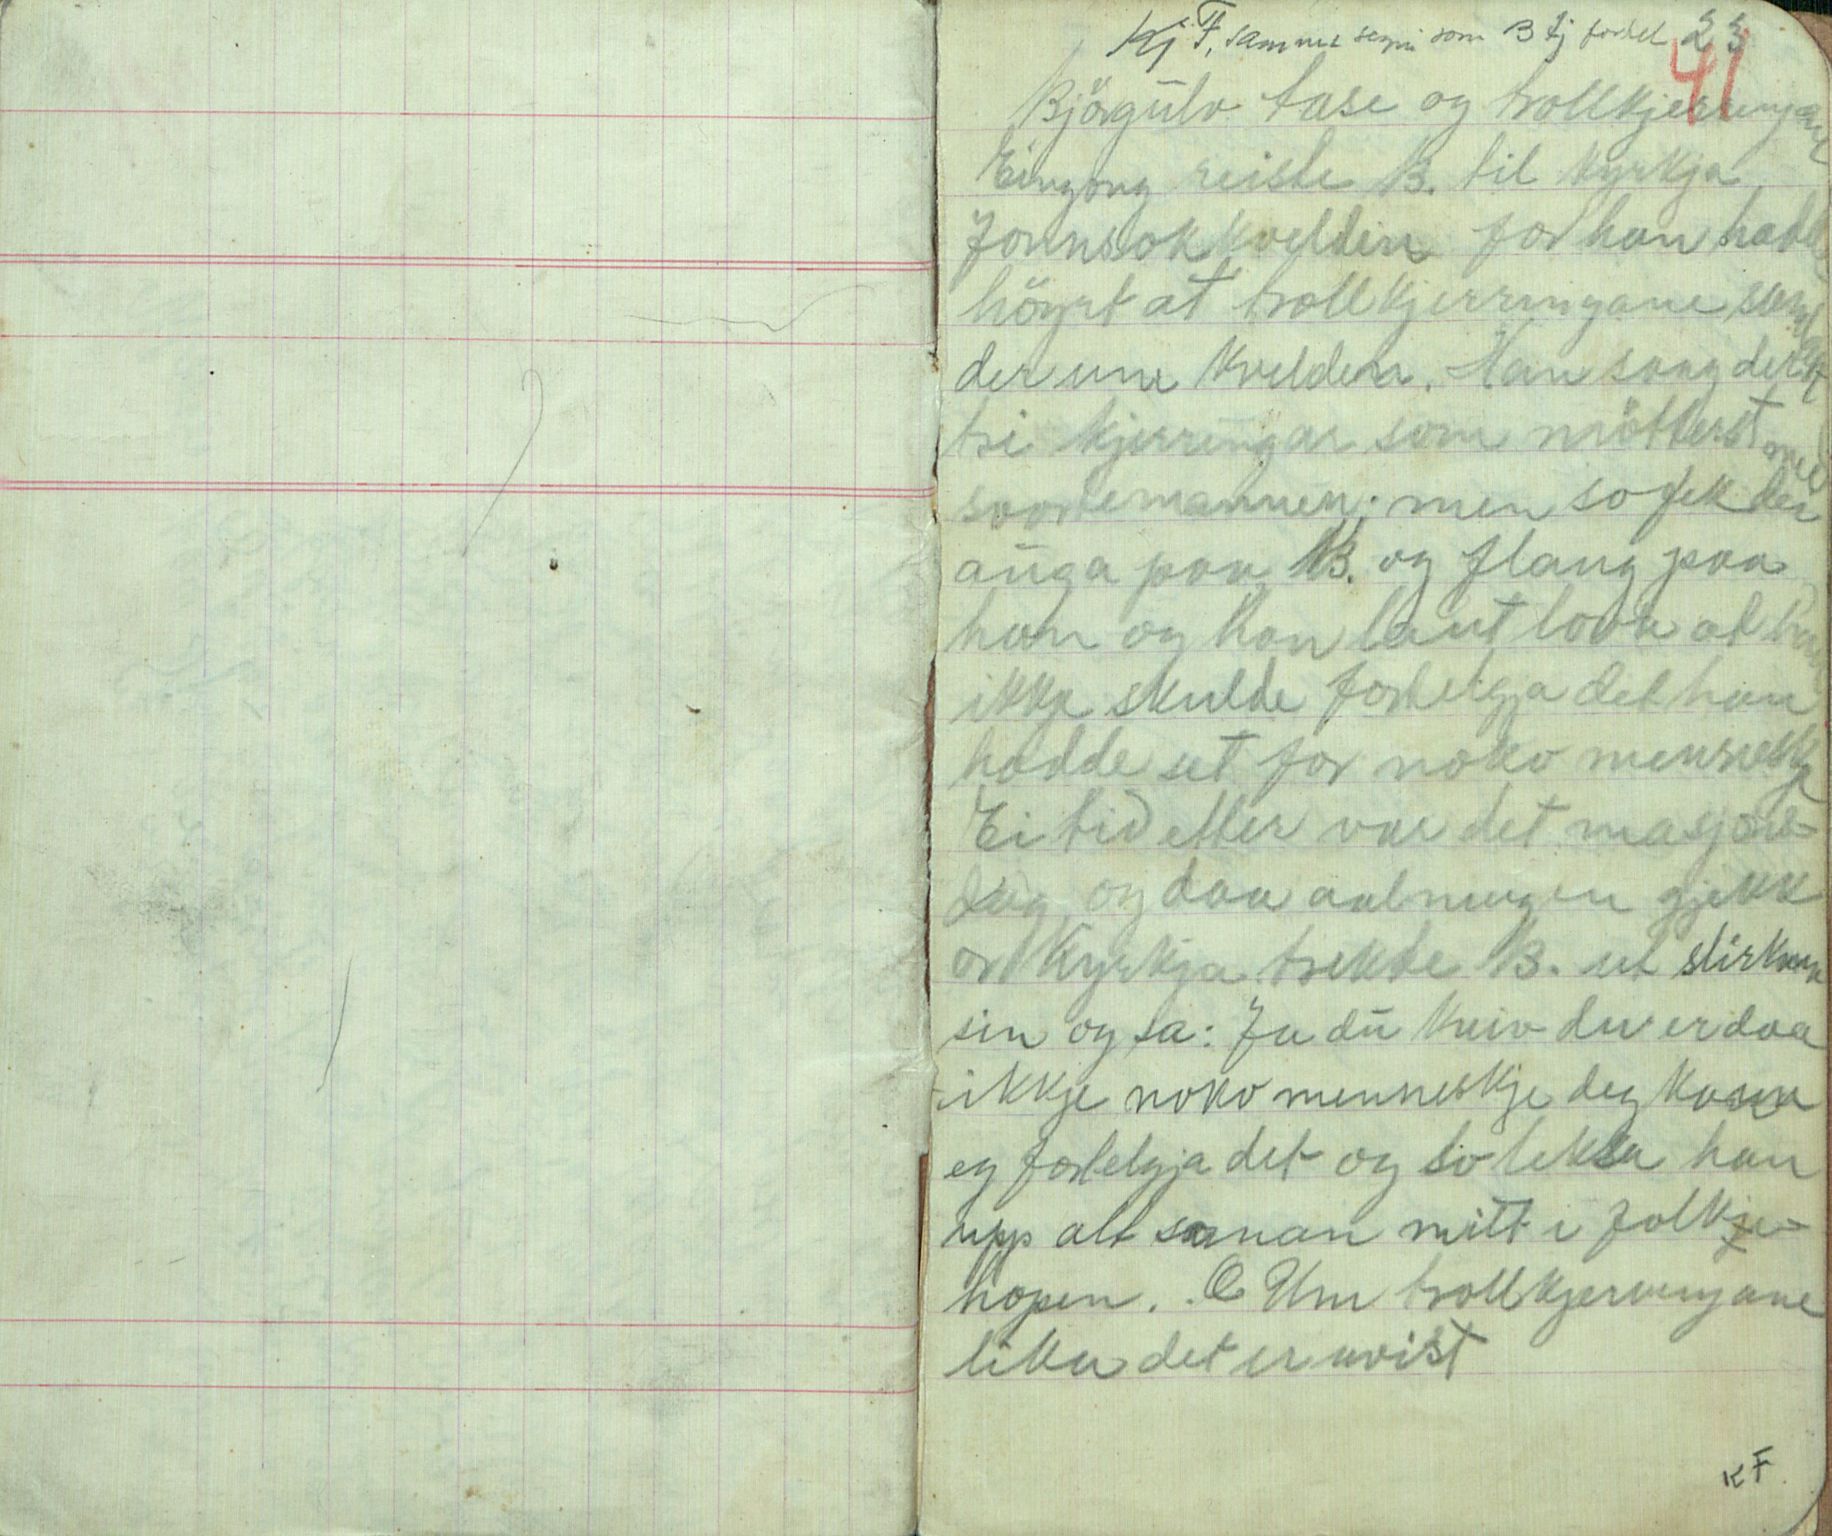 Kj. F, samme segn som B Kj fortel 23
41
Björgulv tase og trollkjerringane
Eingong reiste B. til kyrkja
Jonnsokkvelden for han hadde
höyrt at trollkjerringane samlast
der um kvelden. Han saag der
tri kjerringar som mötterst med
svartemannen; men so fek dei
auga paa B. og flaug paa
han og han laut lova at han
ikkje skulde fortelgja det han
hadde set for noko menneskje
Ei tid etter var det masjons-
dag og daa aalmugen gjekk
or kyrkja trekte B. ut slirkniven
sin og sa: Ja du kniv du er daa
ikkje noko menneskje deg kann
eg fortelgja det og so leksa han
upp alt saman mitt i folkje-
hopen. Um trollkjerringane
lika det er uvist
KF